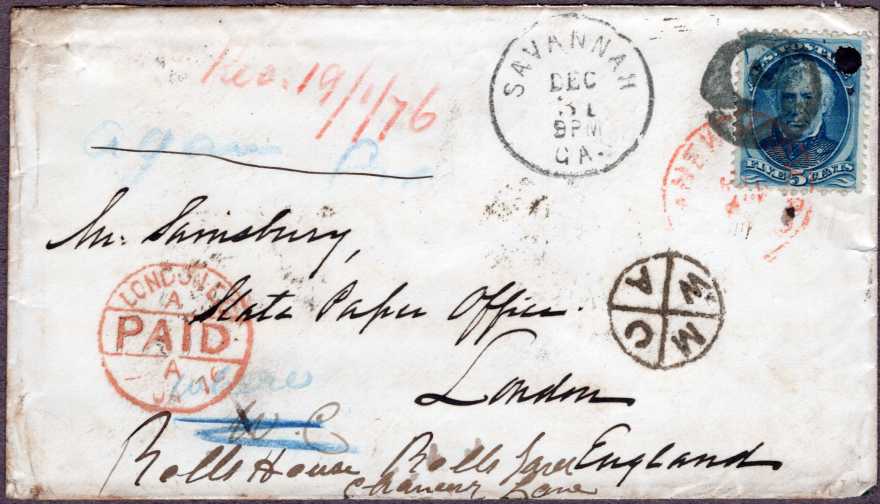 Rec. 19/1/76
again
SAVANNAH
DEC
31
8PM
GA.
U.S. POSTAGE
FIVE 5 CENTS
NEW
Mr. Sainsbury,
State Paper Office.
London
England
LONDON
A
PAID
A
JA
76
where
W.C
A W
C M
Rolls House Rolls
Chancery Lane